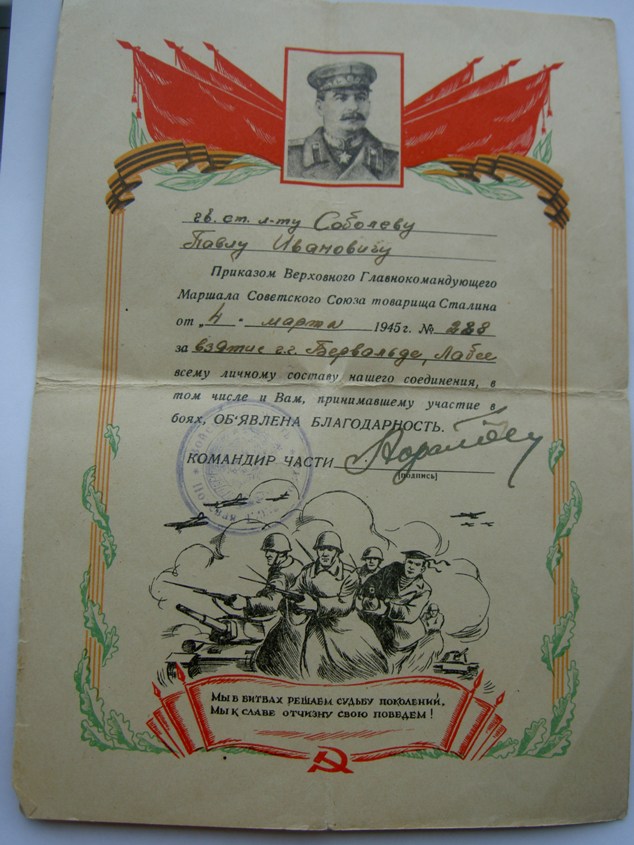 гв. ст. л-ту Соболеву
Павлу Ивановичу
Приказом Верховного Главнокомандующего
Маршала Советского Союза товарища Сталина
от „4 " марта 1945 г. № 288
за взятие г.г. Бервальде, Лабес
всему личному составу нашего соединения, в
том числе и Вам, принимавшему участие в
боях, ОБ'ЯВЛЕНА БЛАГОДАРНОСТЬ.
КОМАНДИР ЧАСТИ
(подпись)
МЫ В БИТВАХ РЕШАЕМ СУДЬБУ ПОКОЛЕНИЙ,
МЫ К СЛАВЕ ОТЧИЗНУ СВОЮ ПОВЕДЕМ!